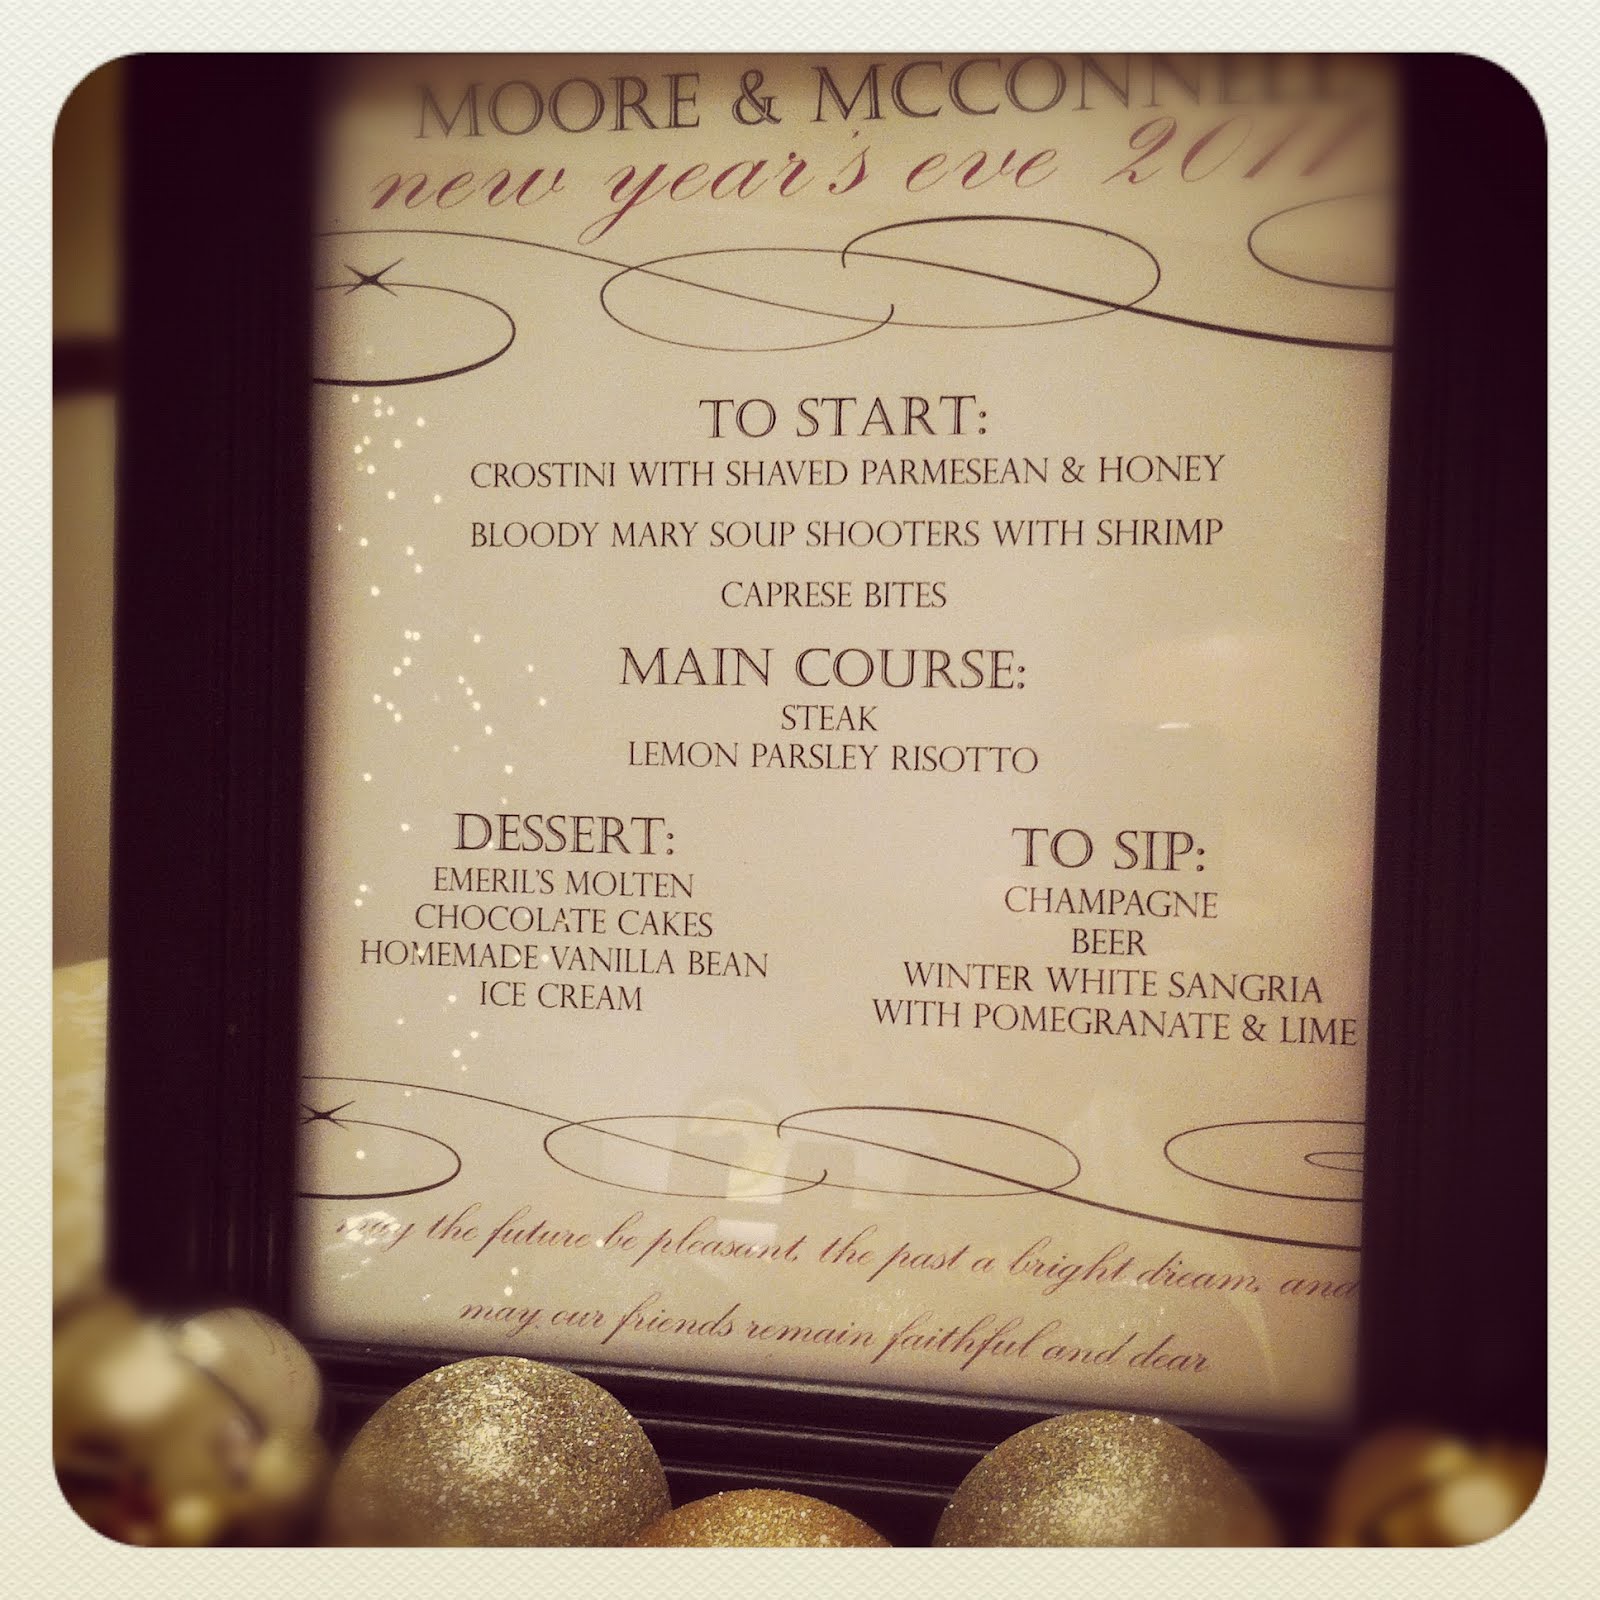 MOORE & MCCONNELL
new year's eve 2011
TO START:
CROSTINI WITH SHAVED PARMESEAN & HONEY
BLOODY MARY SOUP SHOOTERS WITH SHRIMP
CAPRESE BITES
MAIN COURSE:
STEAK
LEMON PARSLEY RISOTTO
DESSERT:
EMERIL'S MOLTEN
CHOCOLATE CAKES
HOMEMADE VANILLA BEAN
ICE CREAM
TO SIP:
CHAMPAGNE
BEER
WINTER WHITE SANGRIA
WITH POMEGRANATE & LIME
may the future be pleasant, the past a bright dream, and
may our friends remain faithful and dear